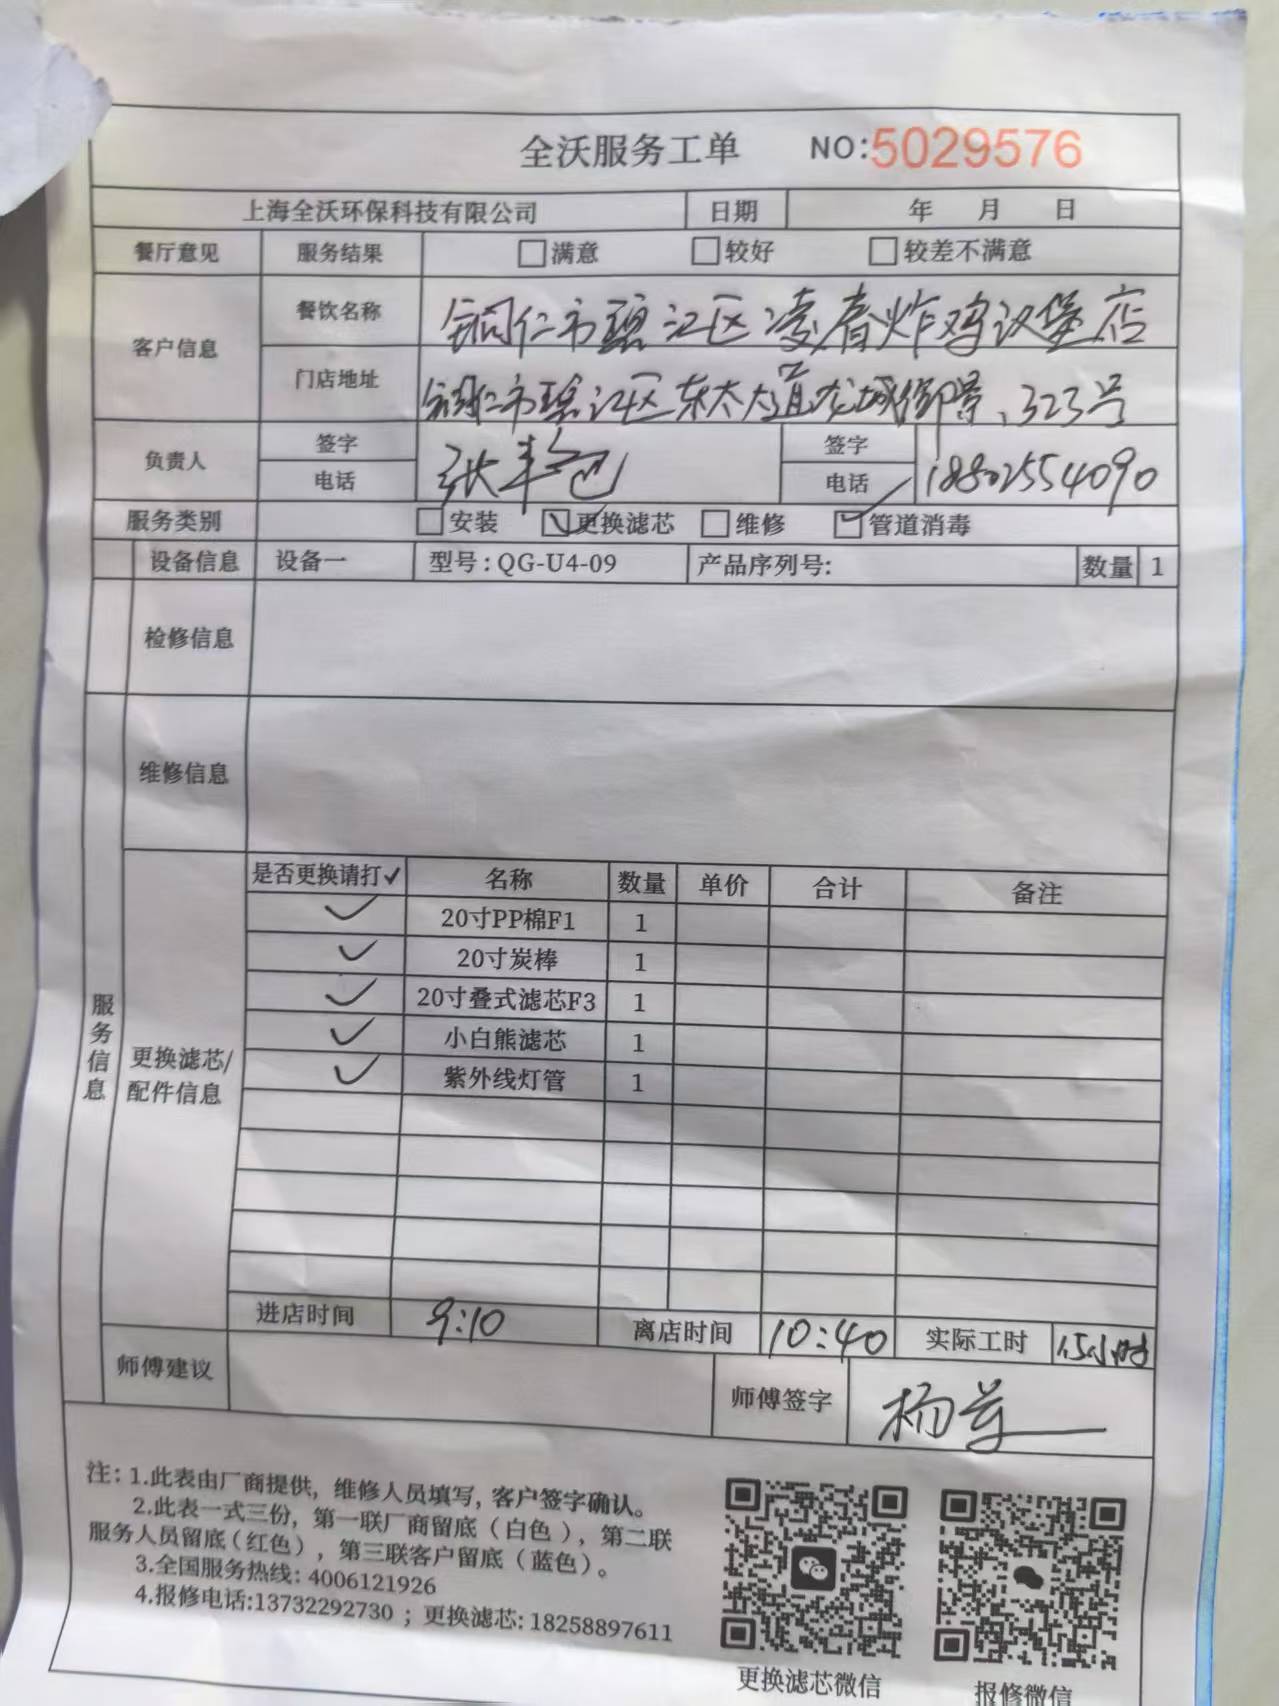 全沃服务工单 NO:5029576
上海全沃环保科技有限公司 日期 年 月 日
餐厅意见 服务结果 □满意 □较好 □较差不满意
客户信息 餐饮名称 铜仁市碧江区凌春炸鸡汉堡店
门店地址 铜仁市碧江区东太大道龙城御景、323号
负责人 签字 张 签字
电话 电话 18802554090
服务类别 □安装 ☑更换滤芯 □维修 ☑管道消毒
设备信息 设备一 型号:QG-U4-09 产品序列号: 数量 1
检修信息
维修信息
服务信息
更换滤芯/
配件信息
是否更换请打✓ 名称 数量 单价 合计 备注
✓ 20寸PP棉F1 1
✓ 20寸炭棒 1
✓ 20寸叠式滤芯F3 1
✓ 小白熊滤芯 1
✓ 紫外线灯管 1
进店时间 9:10 离店时间 10:40 实际工时 1.5小时
师傅建议 师傅签字 杨
注: 1.此表由厂商提供, 维修人员填写, 客户签字确认。
2.此表一式三份, 第一联厂商留底（白色）, 第二联
服务人员留底(红色), 第三联客户留底（蓝色）。
3.全国服务热线: 4006121926
4.报修电话:13732292730 ; 更换滤芯: 18258897611
更换滤芯微信 报修微信